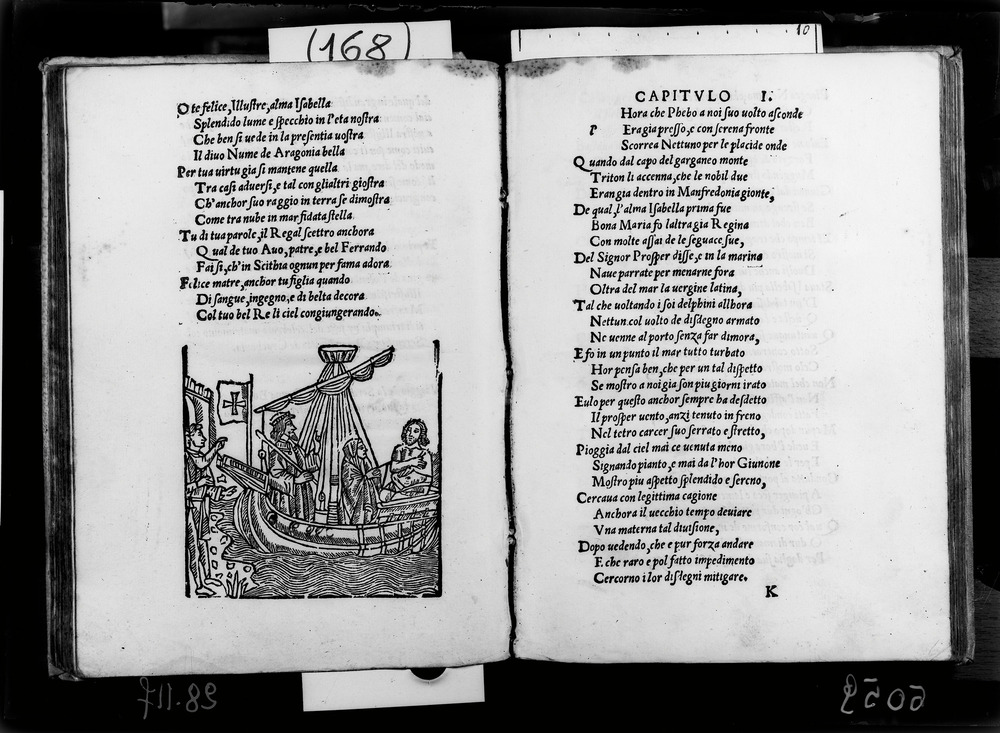 (168)
10
O te felice, Illuſtre, alma Iſabella
Splendido lume e ſpecchio in l'eta noſtra
Che ben ſi uede in la preſentia uoſtra
Il diuo Nume de Aragonia bella
Per tua uirtu gia ſi mantene quella
Tra caſi aduerſi, e tal con glialtri gioſtra
Ch'anchor ſuo raggio in terra ſe dimoſtra
Come tra nube in mar fidata ſtella
Tu di tua parole, il Regal ſcettro anchora
Qual de tuo Auo, patre, e bel Ferrando
Fai ſi, ch'in Scithia ognun per fama adora
Felice matre, anchor tu figlia quando
Di ſangue, ingegno, e di belta decora
Col tuo bel Re li ciel congiungerando.
CAPITVLO I.
Hora che Phebo a noi ſuo uolto aſconde
P Era gia preſſo, e con ſerena fronte
Scorrea Nettuno per le placide onde
Quando dal capo del garganeo monte
Triton li accenna, che le nobil due
Eran gia dentro in Manfredonia gionte,
De qual, l'alma Iſabella prima fue
Bona Maria fo laltra gia Regina
Con molte aſſai de le ſeguace ſue,
Del Signor Proſper diſſe, e in la marina
Naue parrate per menarne fora
Oltra del mar la uergine latina,
Tal che uoltando i ſoi delphini allhora
Nettun. col uolto de diſdegno armato
Ne uenne al porto ſenza far dimora,
E fo in un punto il mar tutto turbato
Hor penſa ben, che per un tal diſpetto
Se moſtro a noi gia ſon piu giorni irato
Eulo per queſto anchor ſempre ha deſdetto
Il proſper uento, anzi tenuto in freno
Nel tetro carcer ſuo ſerrato e ſtretto,
Pioggia dal ciel mai ce uenuta meno
Signando pianto, e mai da l'hor Giunone
Moſtro piu aſpetto ſplendido e ſereno,
Cercaua con legittima cagione
Anchora il uecchio tempo deuiare
Vna materna tal diuiſione,
Dopo uedendo, che e pur forza andare
E che raro e pol fatto impedimento
Cercorno i lor diſdegni mitigare.
K
28.117
6059